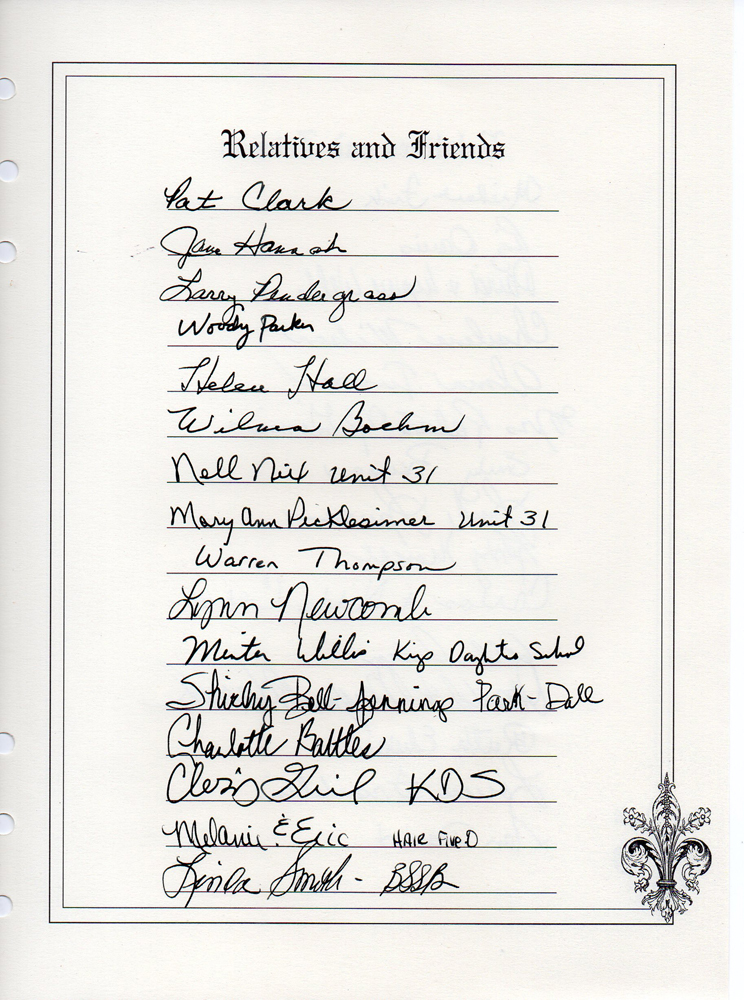 Relatives and Friends
Pat Clark
Jane Hannah
Larry Pendergrass
Woody Parker
Helen Hall
Wilma Boehm
Nell Nix Unit 31
Mary Ann Picklesimer Unit 31
Warren Thompson
Lynn Newcomb
Willis Kings Daughters School
Shirley Bell-Jennings Park-Dale
Charlotte Battles
KDS
Melanie & Eric HAIR Five O
Linda Smith - BSSB